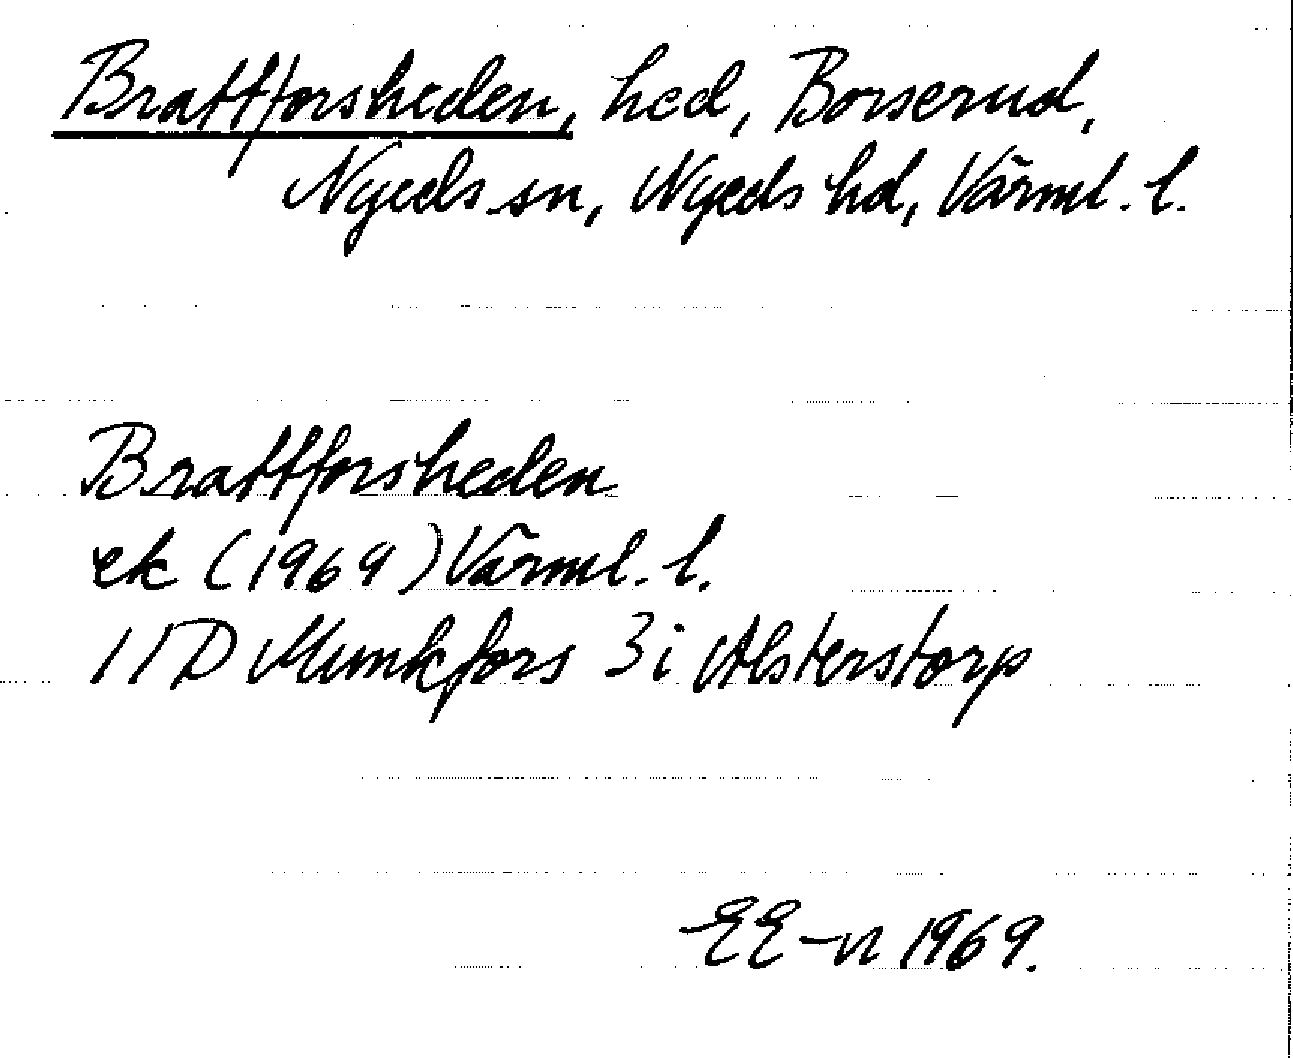 Brattforsheden, hed, Borserud,
Nyeds sn, Nyeds hd, Värml. l.
Brattforsheden
ek (1969) Värml. l.
11D Munkfors 3i Alsterstorp
EE-n 1969.